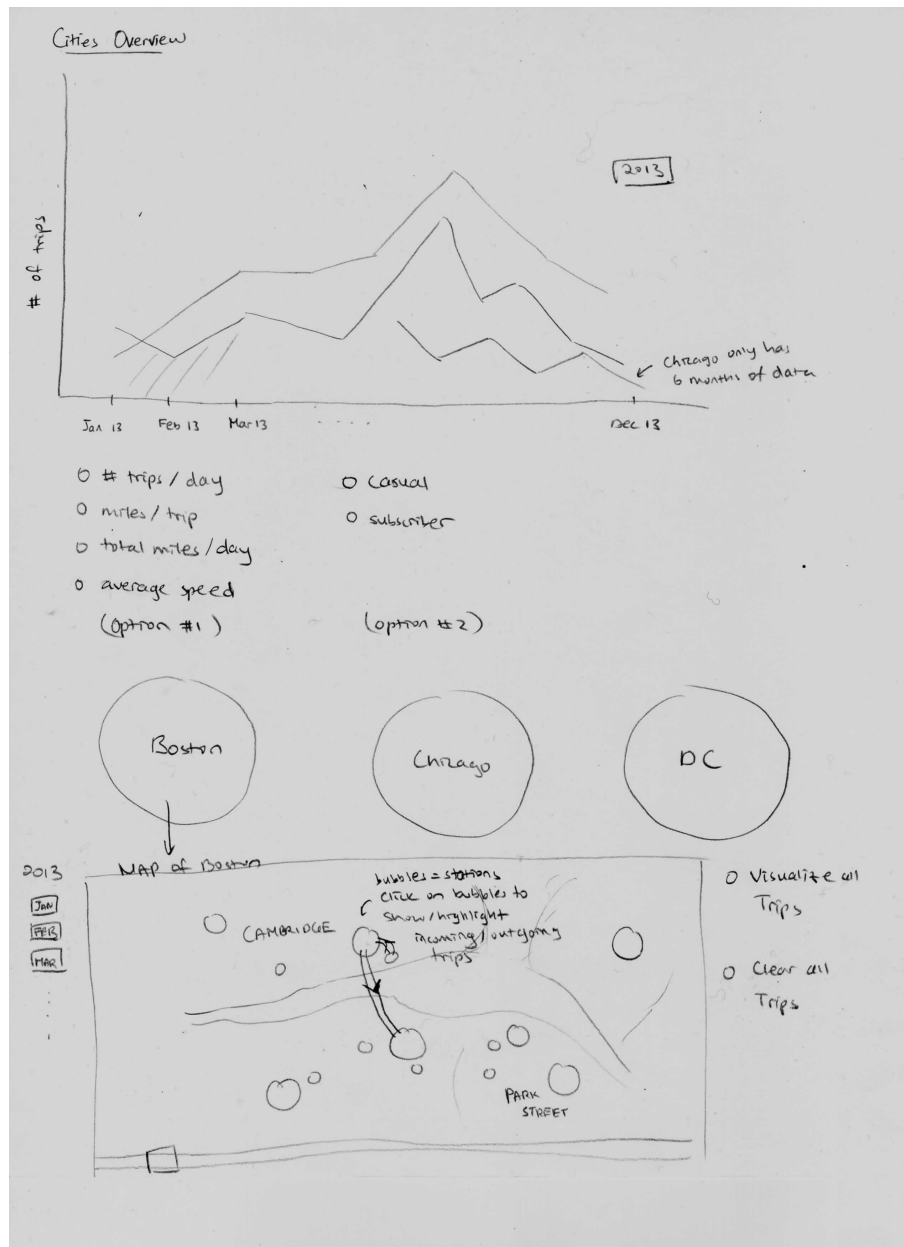 Cities Overview
2013
# of trips
Chicago only has
6 months of data
Jan 13
Feb 13
Mar 13
.....
Dec 13
# trips / day
miles / trip
total miles / day
average speed
(option #1)
casual
subscriber
(option #2)
Boston
Chicago
DC
2013
JAN
FEB
MAR
MAP of Boston
bubbles = stations
click on bubbles to
show/highlight
incoming/outgoing
trips
CAMBRIDGE
PARK
STREET
Visualize all
Trips
Clear all
Trips